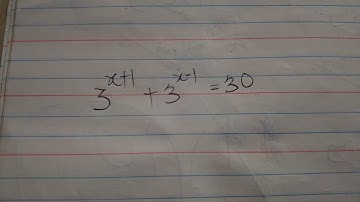 3^{x+1} + 3^{x-1} = 30